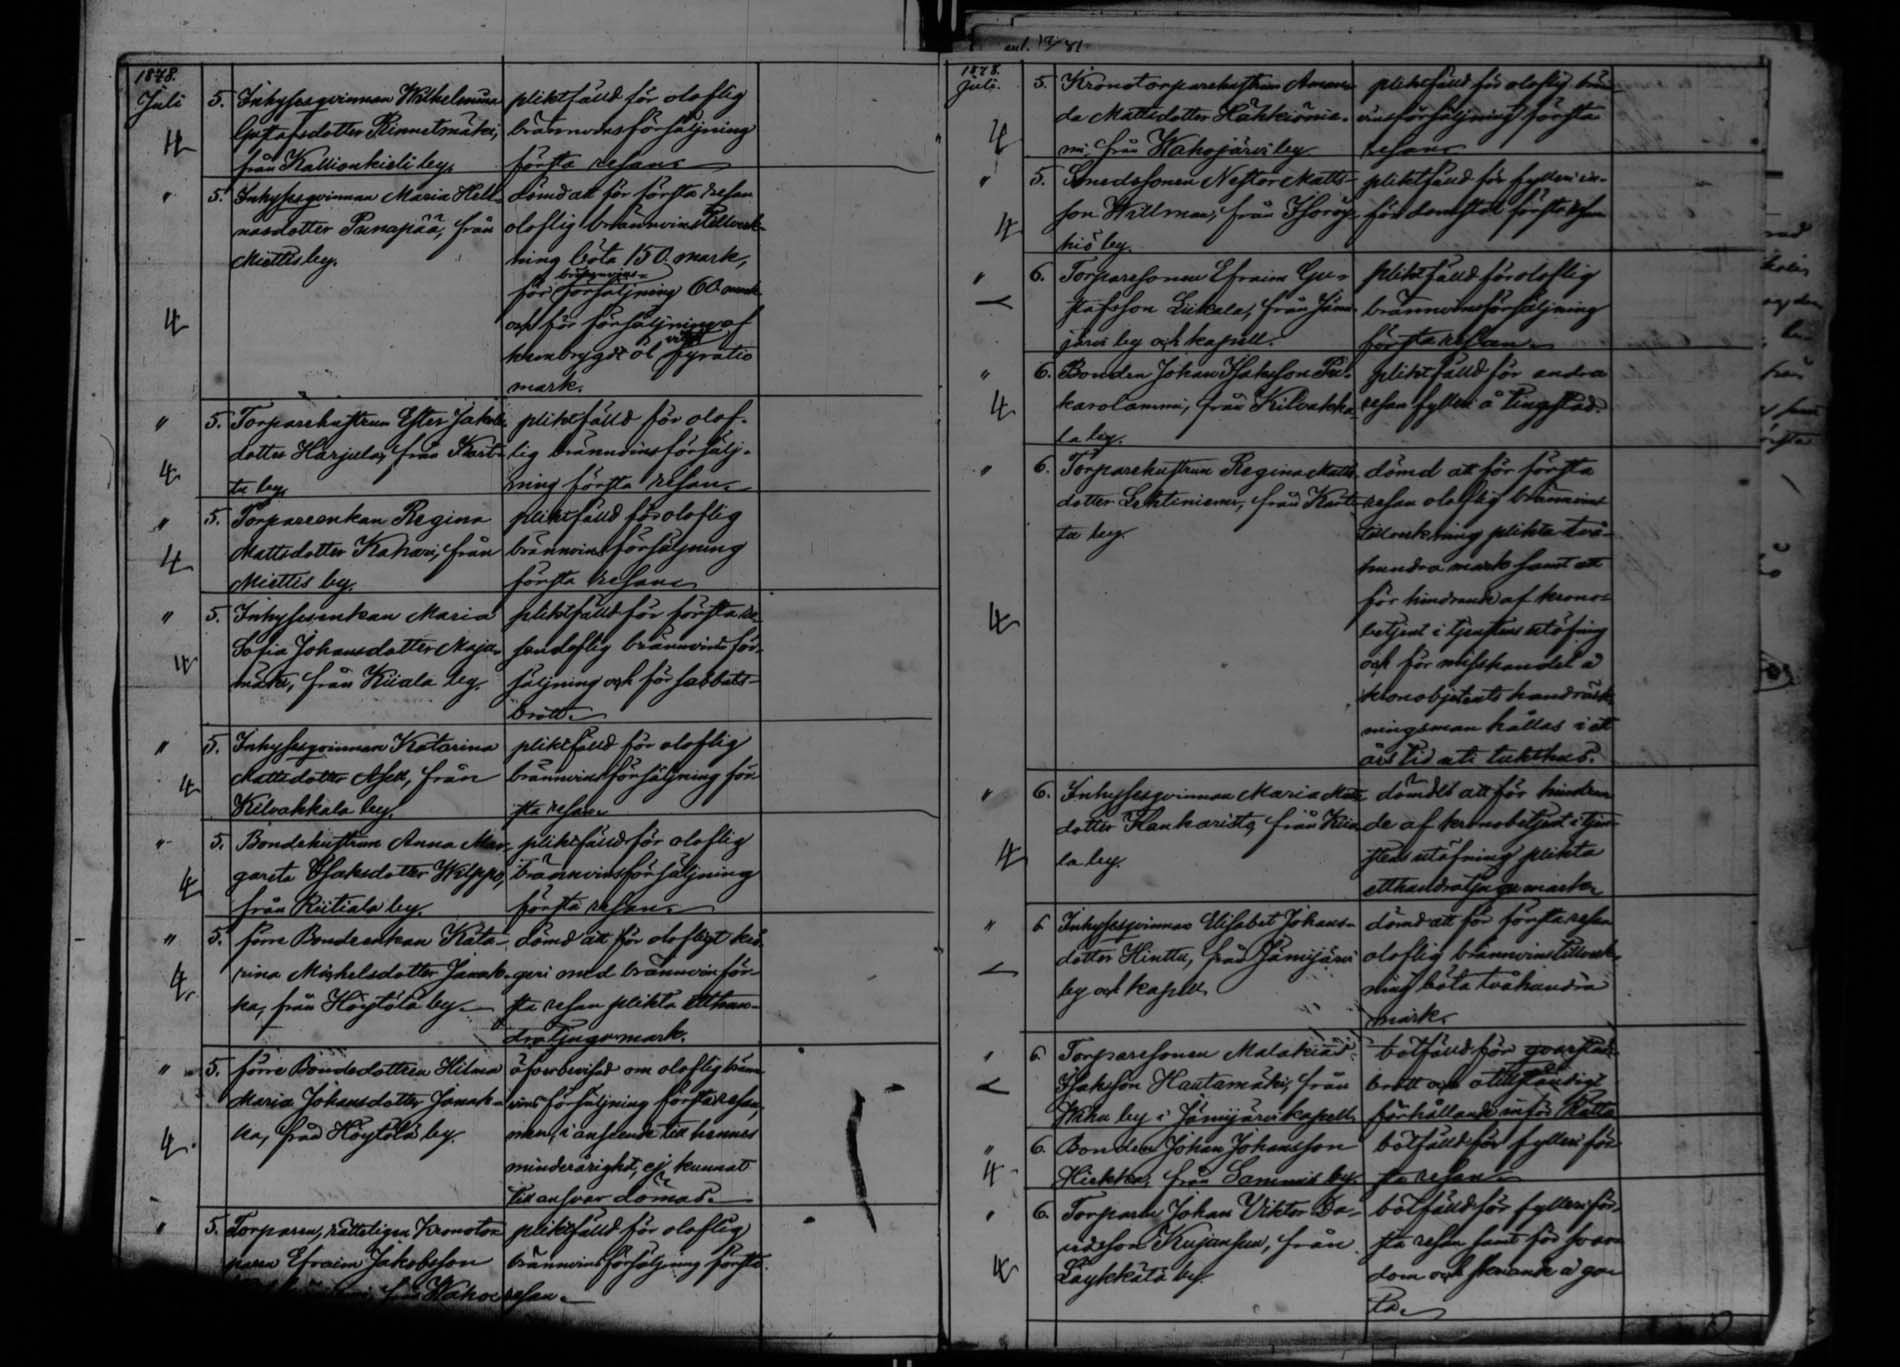 1878.
Juli
5. Inhysesqvinnan Wilhelmina
Gustafsdotter Rinnetmäki,
från Kallionkieli by.
pliktfälld för oloflig
bränvinsförsäljning
första resan.
4
" 5. Inhysesqvinnan Maria Hell-
dotter Punapää, från
Miettis by.
dömd att för första resan
oloflig bränvinstillverk-
ning böta 150 mark,
för bränvins-
försäljning 60 mark
och för försäljning af
hembrygdt öl
fyratio
mark.
4
" 5. Torparehustrun Ester Jakobs-
dotter Harjula, från Kart-
tu by.
pliktfälld för olof-
lig bränvinsförsälj-
ning första resan.
4
" 5. Torpareenkan Regina
Mattsdotter Kahari, från
Miettis by.
pliktfälld för oloflig
bränvinsförsäljning
första resan.
4
" 5. Inhysesenkan Maria
Sofia Johansdotter Maja-
mäki, från Kiiala by.
pliktfälld för första re-
san oloflig bränvinsför-
säljning och för sabbats-
brott.
4
" 5. Inhysesqvinnan Katarina
Mattsdotter Asell, från
Kilvakkala by.
pliktfälld för oloflig
bränvinsförsäljning för-
sta resan.
4
" 5. Bondehustrun Anna Mar-
gareta Isaksdotter Welppo,
från Riitiala by.
pliktfälld för oloflig
bränvinsförsäljning
första resan.
4
" 5. förre Bondeenkan Kata-
rina Mickelsdotter Janak-
ka, från Höytölä by.
dömd att för olofligt krö-
geri med bränvin för-
sta resan plikta etthun-
dratjugu mark.
4.
" 5. förre Bondedottren Hilma
Maria Johansdotter Janak-
ka, från Höytölä by.
öfverbevisad om oloflig brän-
vinsförsäljning första resan
men, i anseende till hennes
minderårighet, ej kunnat
till ansvar dömas.
4.
" 5. Torparen, rätteligen Kronotor-
paren Efraim Jakobsson
från Wahoe
pliktfälld för oloflig
bränvinsförsäljning första
resan.
1878.
Juli.
5. Kronotorparehustrun Aman-
da Mattsdotter Häkkiönie-
mi, från Wahojärvi by.
pliktfälld för oloflig brän-
vinsförsäljning första
resan.
4
" 5. Smedssonen Nestor Matts-
son Willman, från
by.
pliktfälld för fylleri in-
för domstol första resan
4
" 6. Torparesonen Efraim Gu-
stafsson Liikala, från Jämi-
järvi by och kapell.
pliktfälld för oloflig
bränvinsförsäljning
första resan.
" 6. Bonden Johan Isaksson Pu-
karolammi, från Kilvakka-
la by.
pliktfälld för andra
resan fylleri å tingstad.
4
" 6. Torparehustrun Regina Matts-
dotter Lehtiniemi, från Kart-
tu by.
dömd att för första
resan oloflig bränvins
tillverkning plikta två-
hundra mark samt att
för hindrande af krono-
betjent i tjenstens utöfning
och för misshandel å
kronobetjents handräck-
ningsman hållas i ett
års tid uti tukthus.
4
" 6. Inhysesqvinnan Maria Matts-
dotter Kankaristo, från Kiia-
la by.
dömdes att för hindran-
de af kronobetjent i tjen-
stens utöfning plikta
etthundratjugu mark.
4
" 6 Inhysesqvinnan Elisabet Johans-
dotter Hinttu, från Jämijärvi
by och kapell.
dömd att för första resan
oloflig bränvinstillverk-
ning böta tvåhundra
mark.
" 6. Torparesonen Malakias
Isaksson Hautamäki, från
Wihu by i Jämijärvi kapell
bötfälld för qvarstads-
brott och otillständigt
förhållande inför Rätta
" 6. Bonden Johan Johansson
Hiekka, från Sammis by.
bötfälld för fylleri för-
sta resan.
4
" 6. Torparen Johan Viktor Da-
vidsson Kujansuu, från
Läykkälä by.
bötfälld för fylleri för-
sta resan samt för svor-
dom och skrikande å ga-
ta.
4